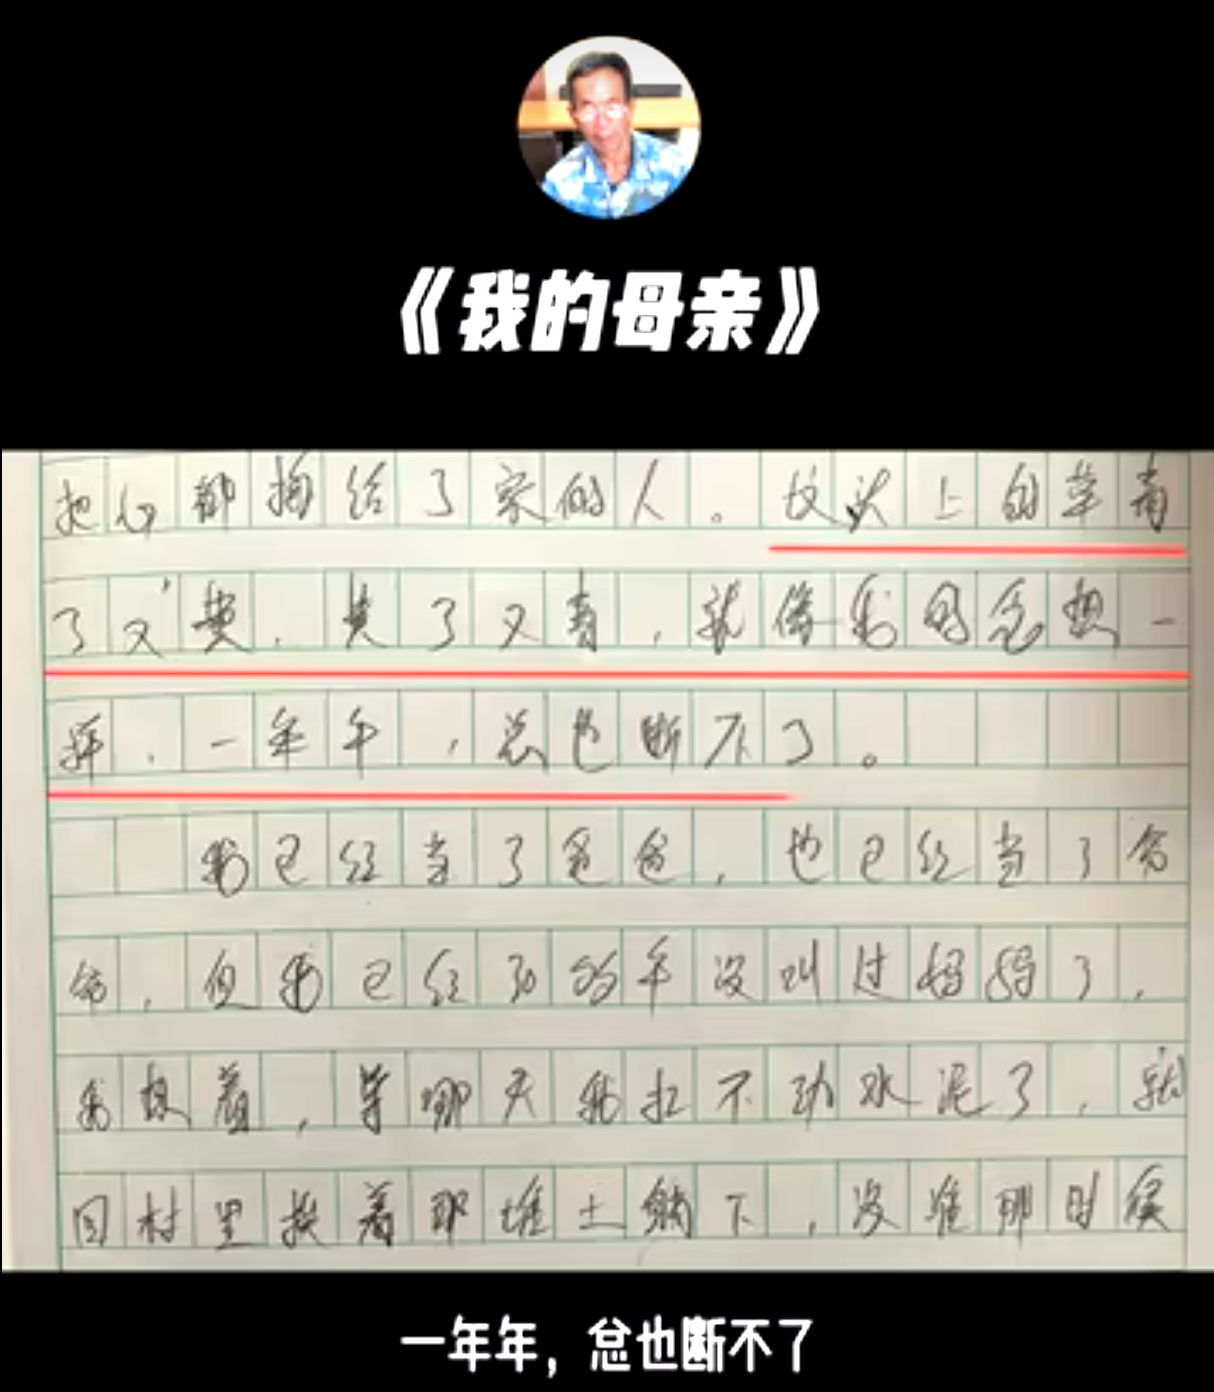 《我的母亲》
把心都掏给了家的人。坟头上的草青
了又黄，黄了又青，就像我的思想一
样，一年年，总也断不了。
我已经当了爸爸，也已经当了爷
爷，但我已经好多年没叫过妈妈了，
我想着，等哪天我扛不动水泥了，就
回村里挨着那堆土躺下，没准那时候
一年年，总也断不了